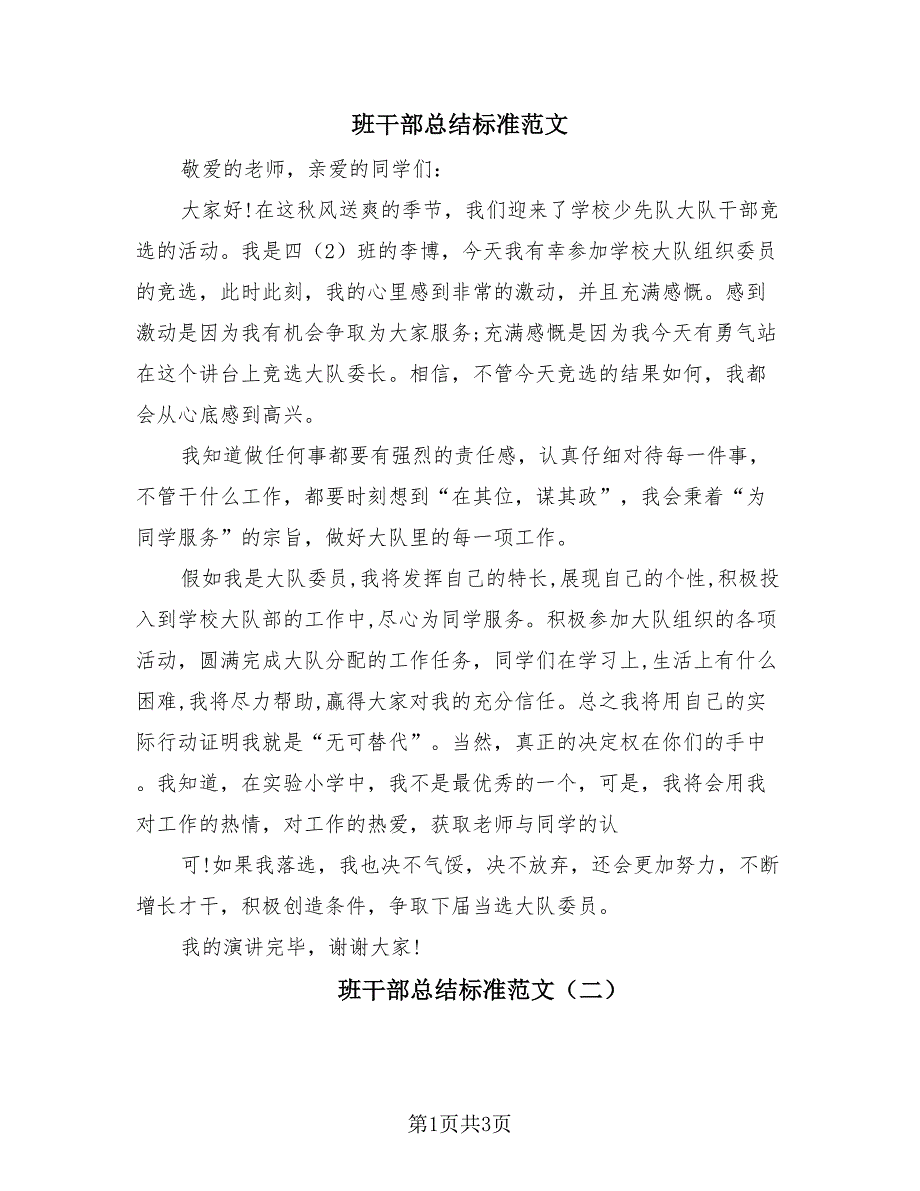 班干部总结标准范文
敬爱的老师，亲爱的同学们：
大家好!在这秋风送爽的季节，我们迎来了学校少先队大队干部竞
选的活动。我是四（2）班的李博，今天我有幸参加学校大队组织委员
的竞选，此时此刻，我的心里感到非常的激动，并且充满感慨。感到
激动是因为我有机会争取为大家服务;充满感慨是因为我今天有勇气站
在这个讲台上竞选大队委长。相信，不管今天竞选的结果如何，我都
会从心底感到高兴。
我知道做任何事都要有强烈的责任感，认真仔细对待每一件事，
不管干什么工作，都要时刻想到“在其位，谋其政”，我会秉着“为
同学服务”的宗旨，做好大队里的每一项工作。
假如我是大队委员,我将发挥自己的特长,展现自己的个性,积极投
入到学校大队部的工作中,尽心为同学服务。积极参加大队组织的各项
活动，圆满完成大队分配的工作任务，同学们在学习上,生活上有什么
困难,我将尽力帮助,赢得大家对我的充分信任。总之我将用自己的实
际行动证明我就是“无可替代”。当然，真正的决定权在你们的手中
。我知道，在实验小学中，我不是最优秀的一个，可是，我将会用我
对工作的热情，对工作的热爱，获取老师与同学的认
可!如果我落选，我也决不气馁，决不放弃，还会更加努力，不断
增长才干，积极创造条件，争取下届当选大队委员。
我的演讲完毕，谢谢大家!
班干部总结标准范文（二）
第1页共3页